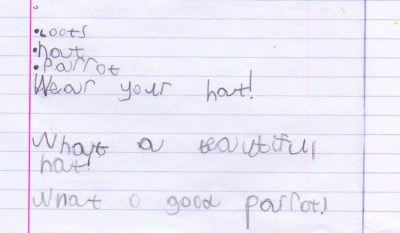 •Loots
•hat
•Parrot
Wear your hat!
What a beautiful
hat!
What a good parrot!